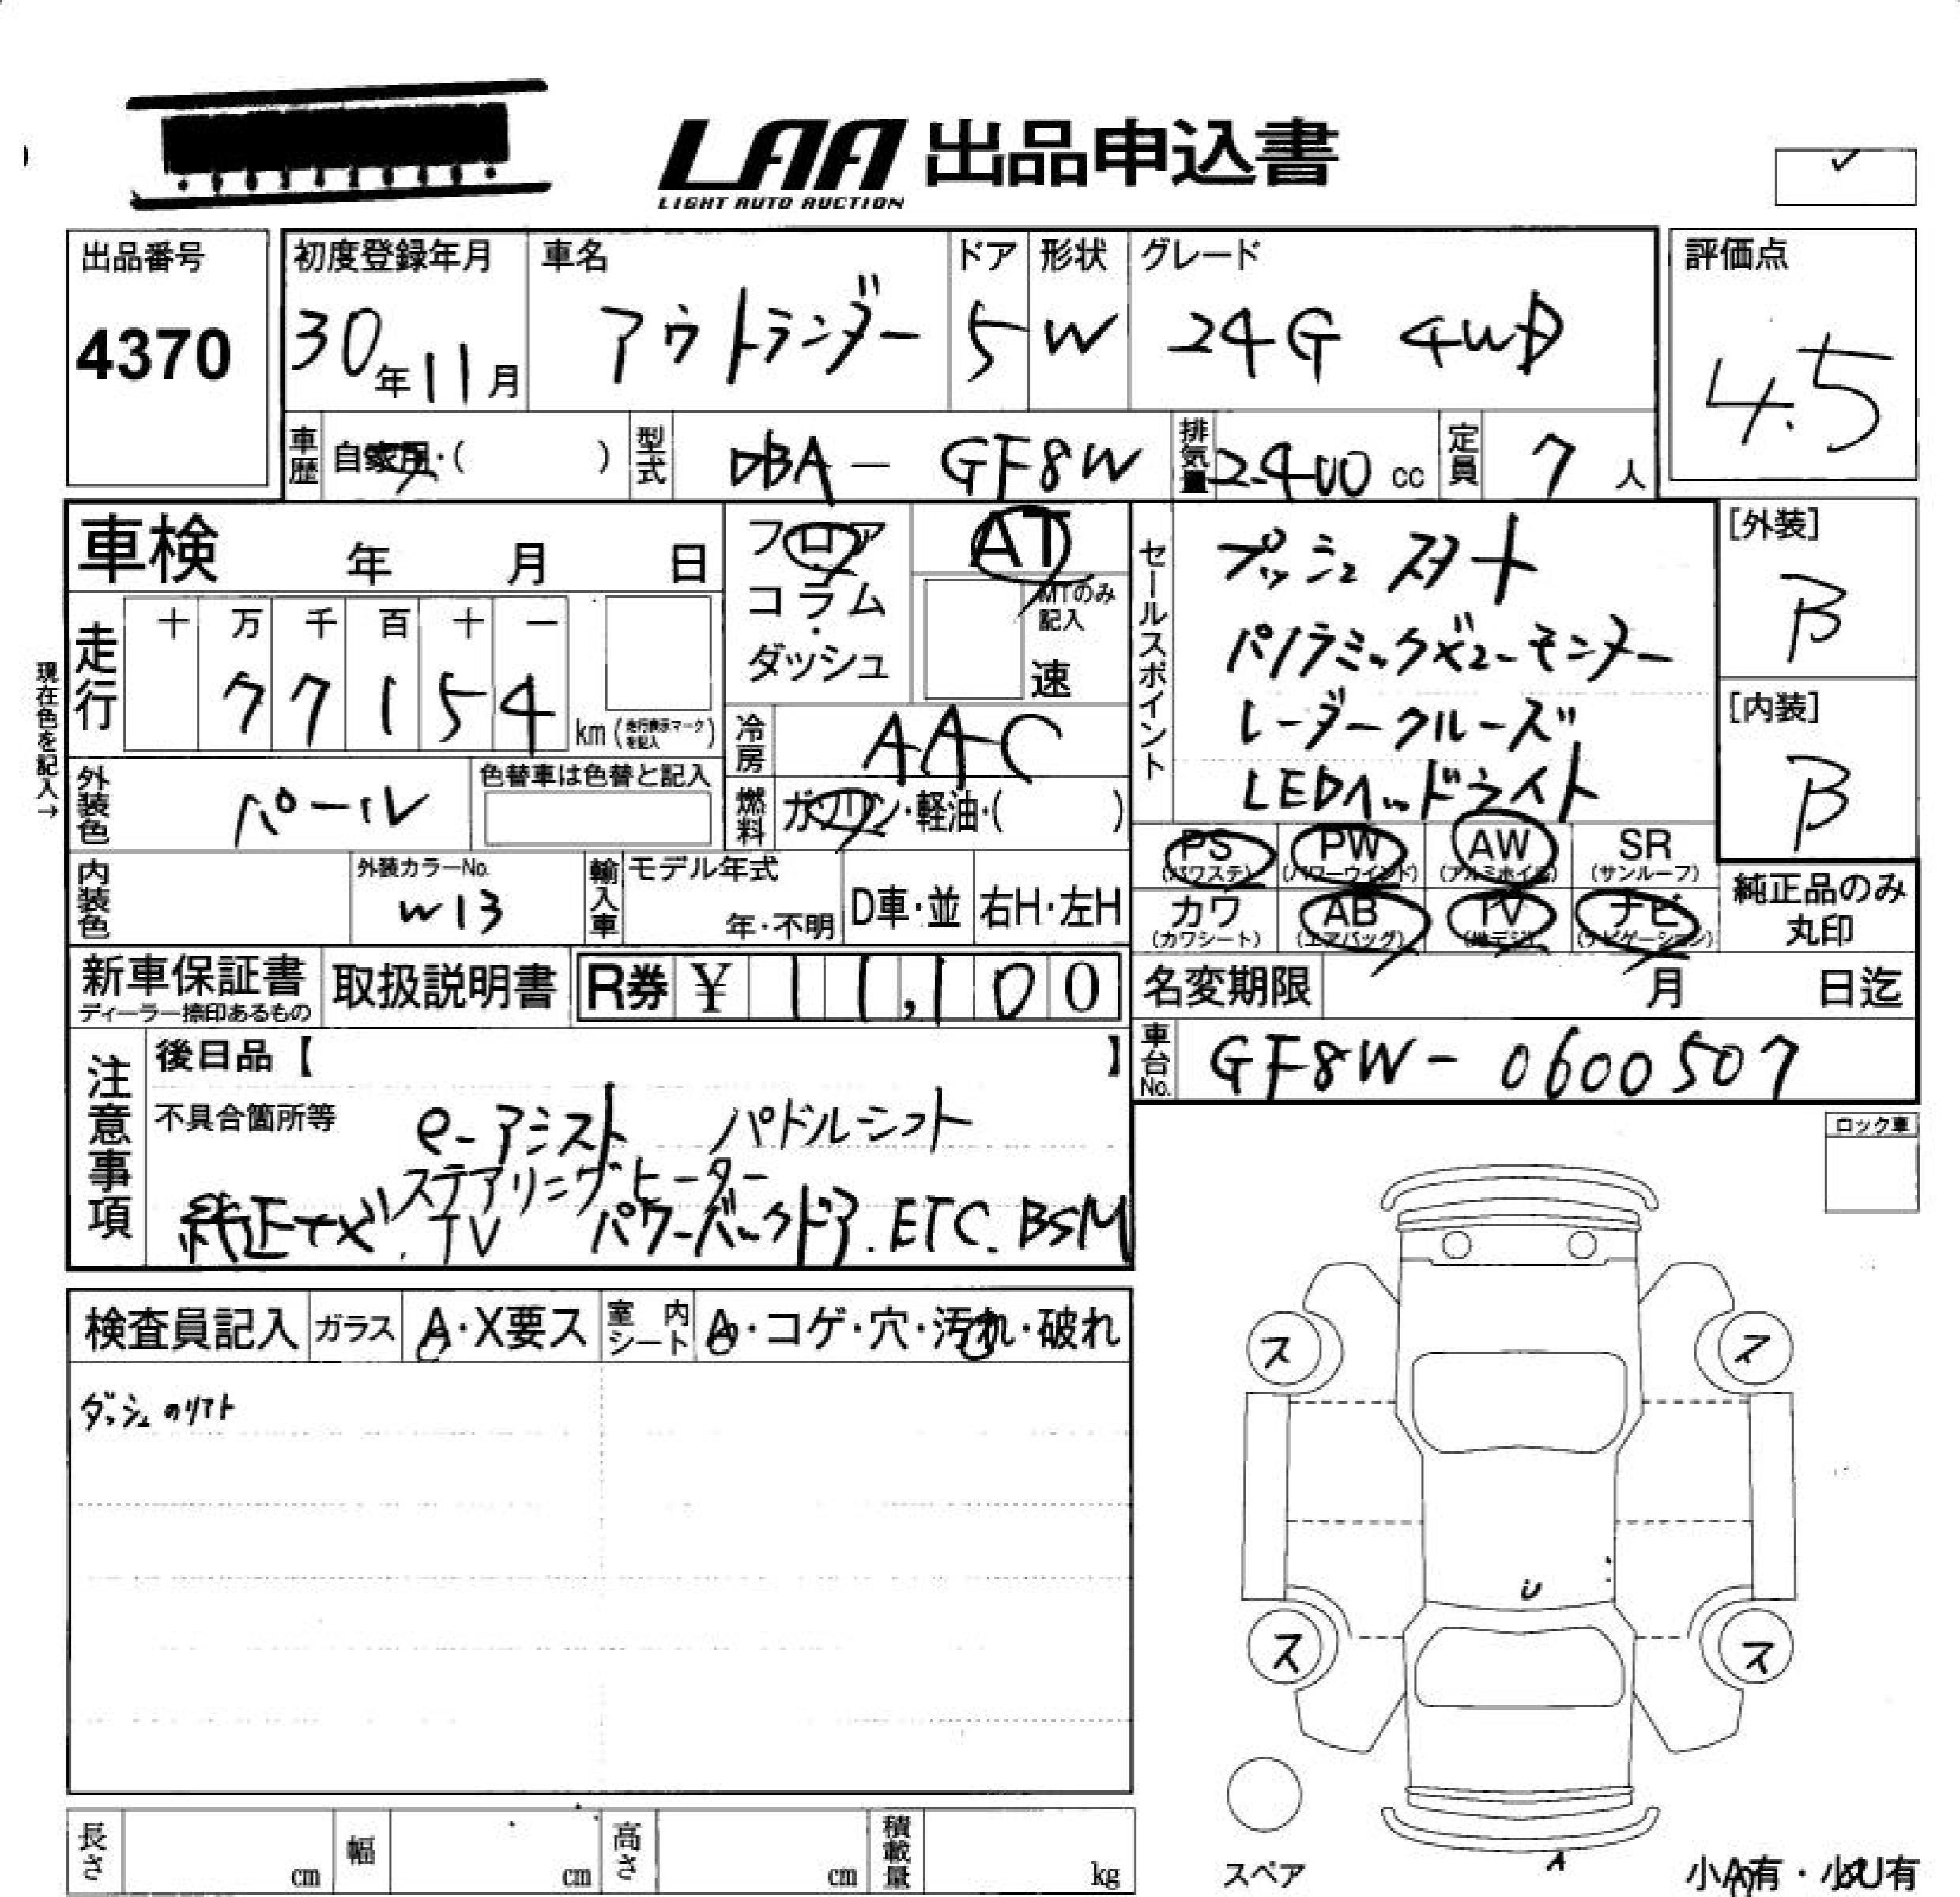 LAA 出品申込書
LIGHT AUTO AUCTION
出品番号
4370
初度登録年月
30年11月
車名
アウトランダー
ドア
5
形状
W
グレード
24G 4WD
評価点
4.5
車歴 自家用・( )
型式 DBA - GF8W
排気量 2400 cc
定員 7 人
車検 年 月 日
フロア
コラム
・
ダッシュ
AT
MTのみ
記入
速
セールスポイント
プッシュスタート
パノラミックビューモニター
レーダークルーズ
LEDヘッドライト
[外装]
B
[内装]
B
現在色を記入→
走行
十 万 千 百 十 一
7 7 1 5 4
km (走行表示マークを記入)
冷房 AAC
外装色 パール
色替車は色替と記入
燃料 ガソリン・軽油・( )
PS
(パワステ)
PW
(パワーウインド)
AW
(アルミホイル)
SR
(サンルーフ)
カワ
(カワシート)
AB
(エアバッグ)
TV
(地デジ)
ナビ
(ナビゲーション)
純正品のみ
丸印
内装色
外装カラーNo.
W13
輸入車
モデル年式
年・不明
D車・並
右H・左H
新車保証書
ディーラー捺印あるもの
取扱説明書
R券 ¥ 11,100
名変期限 月 日迄
車台No. GF8W - 0600507
注意事項
後日品【 】
不具合箇所等
e-アシスト パドルシフト
ステアリングヒーター
純正ナビ.TV パワーバックドア.ETC.BSM
ロック車
検査員記入
ガラス
A・X要ス
室内シート
A・コゲ・穴・汚れ・破れ
ダッシュのリフト
ス
ス
U
ス
ス
スペア
A
小A有・小U有
長さ cm
幅 cm
高さ cm
積載量 kg